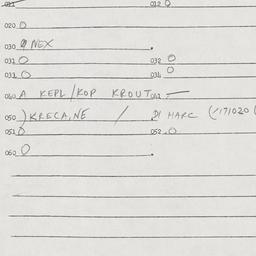 011 012 O
020 O
030 NEX .
031 O 032 O
033 O 034 O
040 A KEPL/KOP KROUT 041 —
050 ) KRECA, NE / DI MARC (/171020 (
051 O 052 O
060 O .